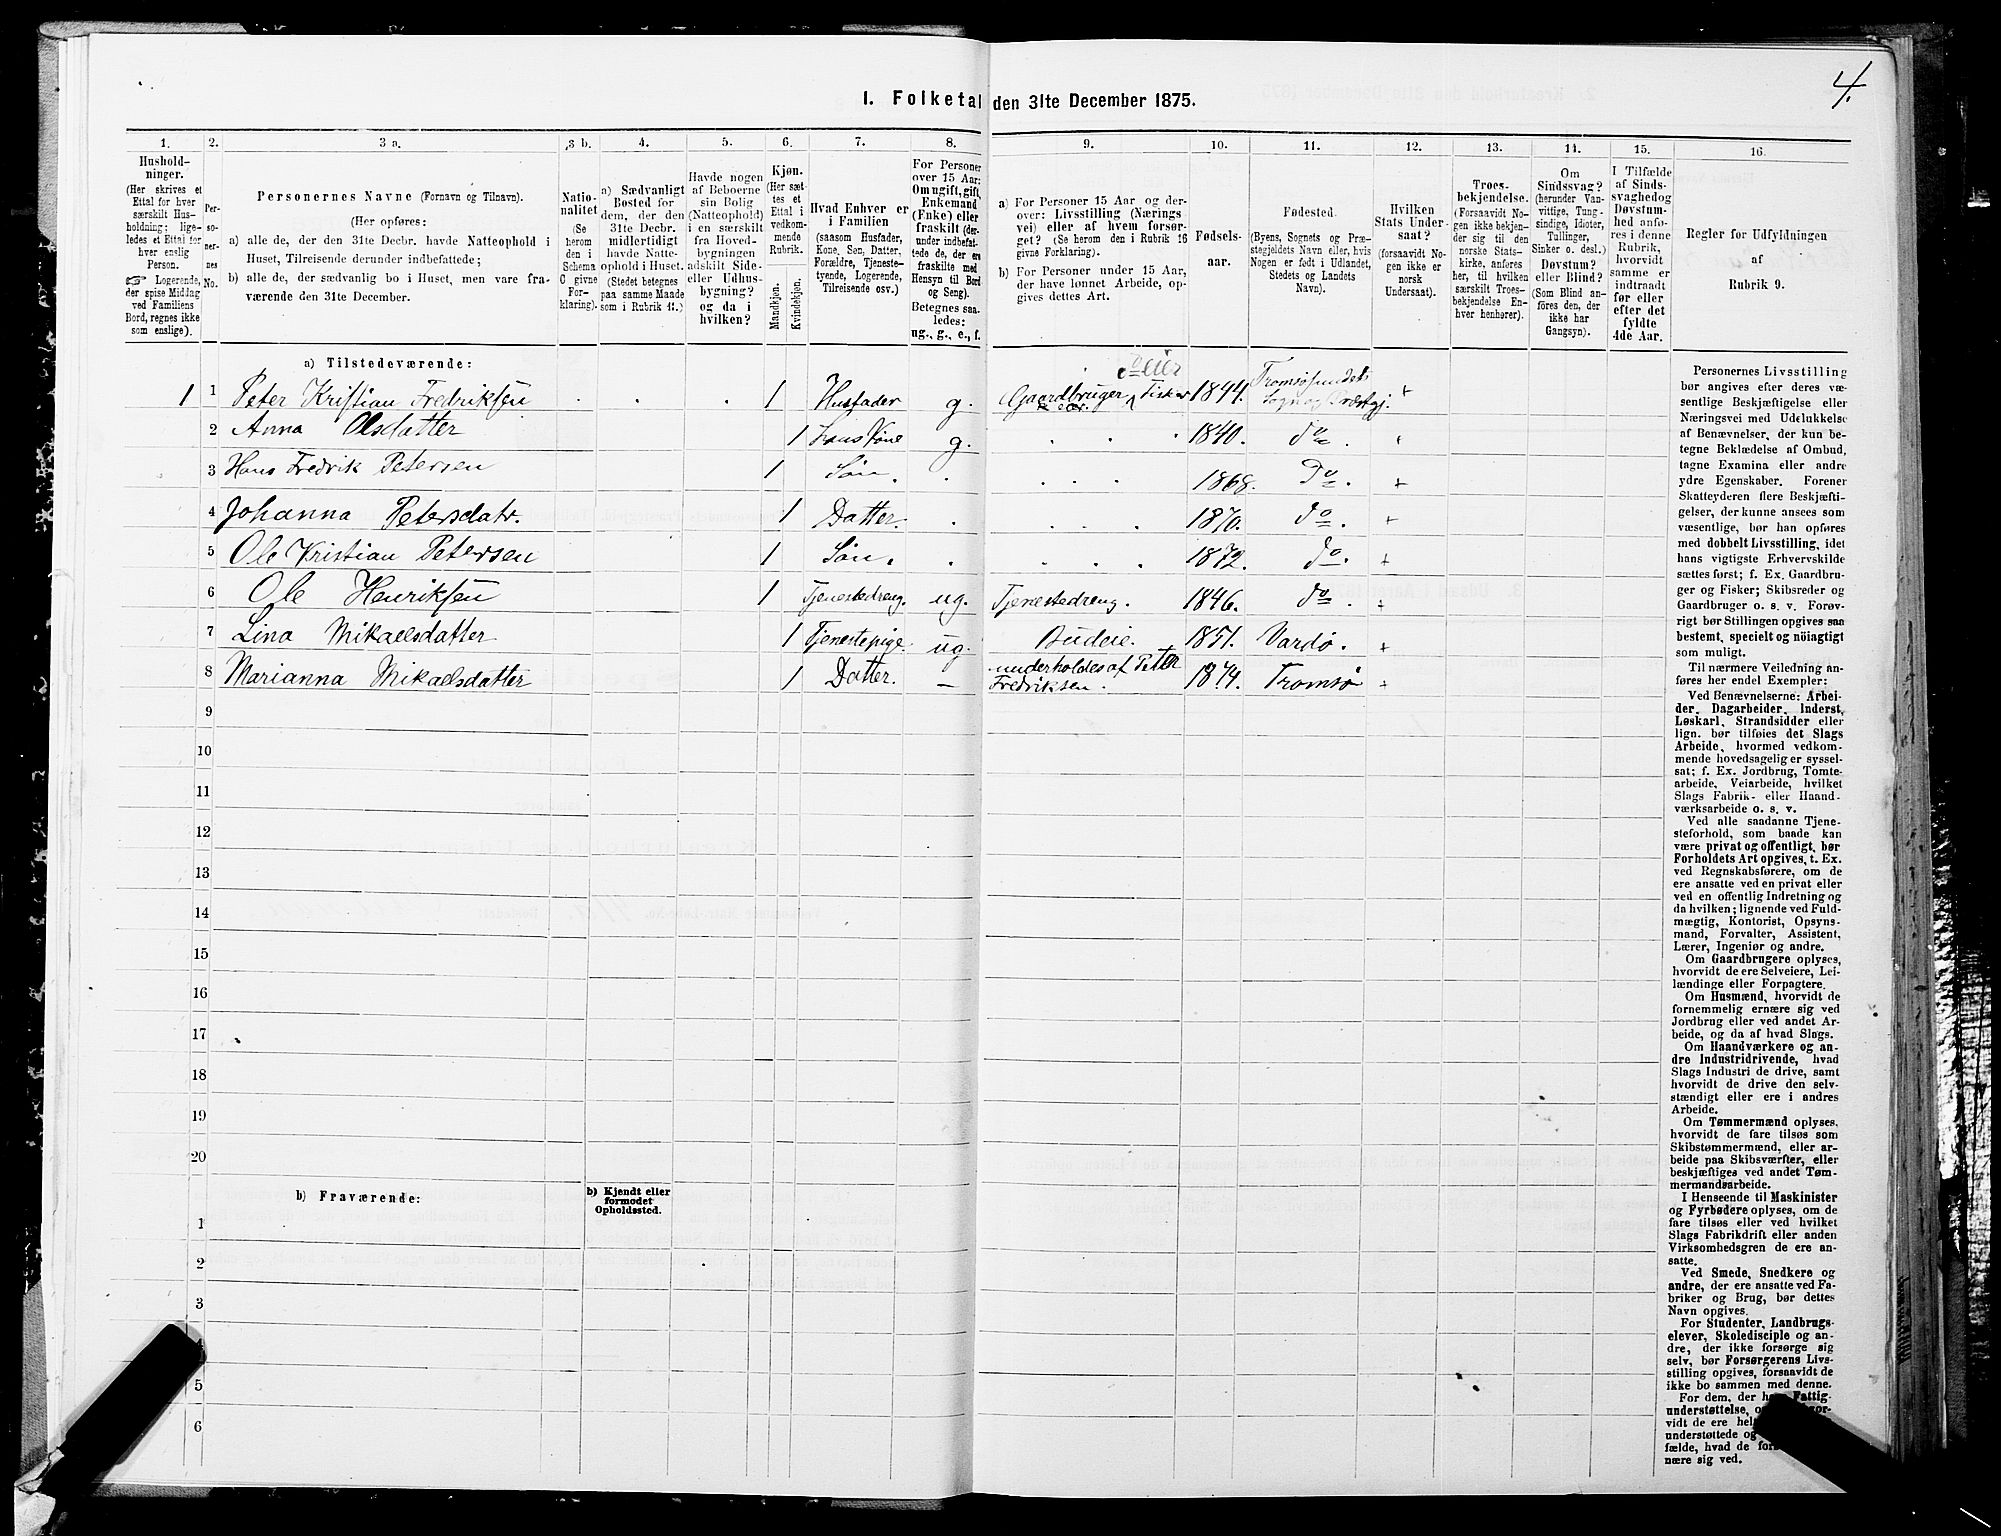 4.
I. Folketal den 31te December 1875.
1.
Hushold-
ninger.
(Her skrives et
Ettal for hver
særskilt Hus-
holdning; lige-
ledes et Ettal for
hver enslig
Person.
☞ Logerende,
der spise Middag
ved Familiens
Bord, regnes ikke
som enslige).
2.
Per-
so-
ner-
nes
No.
3 a.
Personernes Navne (Fornavn og Tilnavn).
(Her opføres:
a) alle de, der den 31te Decbr. havde Natteophold i
Huset, Tilreisende derunder indbefattede;
b) alle de, der sædvanlig bo i Huset, men vare fra-
værende den 31te December.
3 b.
Natio-
nalitet
(Se
herom
den i
Schema
C givne
For-
klaring).
4.
a) Sædvanligt
Bosted for
dem, der den
31te Decbr.
midlertidigt
havde Natte-
ophold i Huset.
(Stedet betegnes
paa samme Maade
som i Rubrik 11.)
5.
Havde nogen
af Beboerne
sin Bolig
(Natteophold)
i en særskilt
fra Hoved-
bygningen
adskilt Side-
eller Udhus-
bygning?
og da i
hvilken?
6.
Kjøn.
(Her sæt-
tes et
Ettal i
vedkom-
mende
Rubrik.
Mandkjøn.
Kvindekjøn.
7.
Hvad Enhver er
i Familien
(saasom Husfader,
Kone, Søn, Datter,
Forældre, Tjeneste-
tyende, Logerende,
Tilreisende osv.)
8.
For Personer
over 15 Aar:
Om ugift, gift,
Enkemand
(Enke) eller
fraskilt (der-
under indbefat-
tede de, der ere
fraskilte med
Hensyn til Bord
og Seng).
Betegnes saa-
ledes:
ug., g., e., f.
9.
a) For Personer 15 Aar og der-
over: Livsstilling (Nærings
vei) eller af hvem forsør-
get? (Se herom den i Rubrik 16
givne Forklaring).
b) For Personer under 15 Aar,
der have lønnet Arbeide, op-
gives dettes Art.
10.
Fødsels-
aar.
11.
Fødested.
(Byens, Sognets og Præ-
stegjeldets Navn eller, hvis
Nogen er født i Udlandet,
Stedets og Landets
Navn).
12.
Hvilken
Stats Under-
saat?
(forsaavidt No-
gen ikke er
norsk
Undersaat).
13.
Troes-
bekjendelse.
(Forsaavidt No-
gen ikke bekjen-
der sig til den
norske Stats-
kirke, anføres
her, til hvilken
særskilt Troes-
bekjendelse En-
hver henhører).
14.
Om
Sindssvag?
(herunder Van-
vittige, Tung-
sindige, Idioter,
Tullinger,
Sinker o. desl.)
Døvstum?
eller Blind?
(Som Blind an-
føres den, der
ikke har
Gangsyn).
15.
I Tilfælde
af Sinds-
svaghed og
Døvstum-
hed anfø-
res i denne
Rubrik,
hvorvidt
samme er
indtraadt
før eller
efter det
fyldte
4de Aar.
16.
Regler for Udfyldningen
af
Rubrik 9.
a) Tilstedeværende:
1 1 Peter Kristian Fredriksen 1 Husfader g. Gaardbruger Fisker 1844. Tromsøsundets Sogn og Præstgj.
2 Anna Olsdatter 1 Hans Kone g. 1840. do.
3 Hans Fredrik Petersen 1 Søn. 1868. Do.
4 Johanna Petersdatr. 1 Datter. 1870. do.
5 Ole Kristian Petersen 1 Søn. 1872. do.
6 Ole Henriksen 1 Tjenestedreng. ug. Tjenestedreng. 1846. do.
7 Lina Mikaelsdatter 1 Tjenestepige. ug. Budeie. 1851. Vardø.
8 Marianna Mikaelsdatter 1 Datter. — underholdes af Peter Fredriksen. 1874. Tromsø
9
10
11
12
13
14
15
16
17
18
19
20
b) Fraværende:
b) Kjendt eller
formodet
Opholdssted.
1
2
3
5
6
Personernes Livsstilling
bør angives efter deres væ-
sentlige Beskjæftigelse eller
Næringsvei med Udelukkelse
af Benævnelser, der kun be-
tegne Beklædelse af Ombud,
tagne Examina eller andre
ydre Egenskaber. Forener
Skatteyderen flere Beskjæfti-
gelser, der kunne ansees som
væsentlige, bør han opføres
med dobbelt Livsstilling, idet
hans vigtigste Erhvervskilde
sættes først; f. Ex. Gaardbru-
ger og Fisker; Skibsreder og
Gaardbruger o. s. v. Forøv-
rigt bør Stillingen opgives saa
bestemt, specielt og nøiagtigt
som muligt.
Til nærmere Veiledning an-
føres her endel Exempler:
Ved Benævnelserne: Arbei-
der, Dagarbeider, Inderst,
Løskarl, Strandsidder eller
lign. bør tilføies det Slags
Arbeide, hvormed vedkom-
mende hovedsagelig er syssel-
sat; f. Ex. Jordbrug, Tomte-
arbeide, Veiarbeide, hvilket
Slags Fabrik- eller Haand-
værksarbeide o. s. v.
Ved alle saadanne Tjene-
steforhold, som baade kan
være privat og offentligt, bør
Forholdets Art opgives, t. Ex.
ved Regnskabsførere, om de
ere ansatte ved en privat eller
ved en offentlig Indretning og
da hvilken; lignende ved Fuld-
mægtig, Kontorist, Opsyns-
mand, Forvalter, Assistent,
Lærer, Ingeniør og andre.
Om Gaardbrugere oplyses,
hvorvidt de ere Selveiere, Lei-
lændinge eller Forpagtere.
Om Husmænd, hvorvidt de
fornemmelig ernære sig ved
Jordbrug eller ved andet Ar-
beide, og da af hvad Slags.
Om Haandværkere og an-
dre Industridrivende, hvad
Slags Industri de drive, samt
hvorvidt de drive den selv-
stændigt eller ere i andres
Arbeide.
Om Tømmermænd oplyses,
hvorvidt de fare tilsøs som
Skibstømmermænd, eller ar-
beide paa Skibsværfter, eller
beskjæftiges ved andet Tøm-
mermandsarbeide.
I Henseende til Maskinister
og Fyrbødere oplyses, om de
fare tilsøs eller ved hvilket
Slags Fabrikdrift eller anden
Virksomhedsgren de ere an-
satte.
Ved Smede, Snedkere og
andre, der ere ansatte ved Fa-
briker og Brug, bør dettes
Navn opgives.
For Studenter, Landbrugs-
elever, Skoledisciple og an-
dre, der ikke forsørge sig
selv, bør Forsørgerens Livs-
stilling opgives, forsaavidt de
ikke bo sammen med denne.
For dem, der Fattig-
understøttelse,
vidt de ere
understøttede og
fælde, hvad de
nære sig ved.